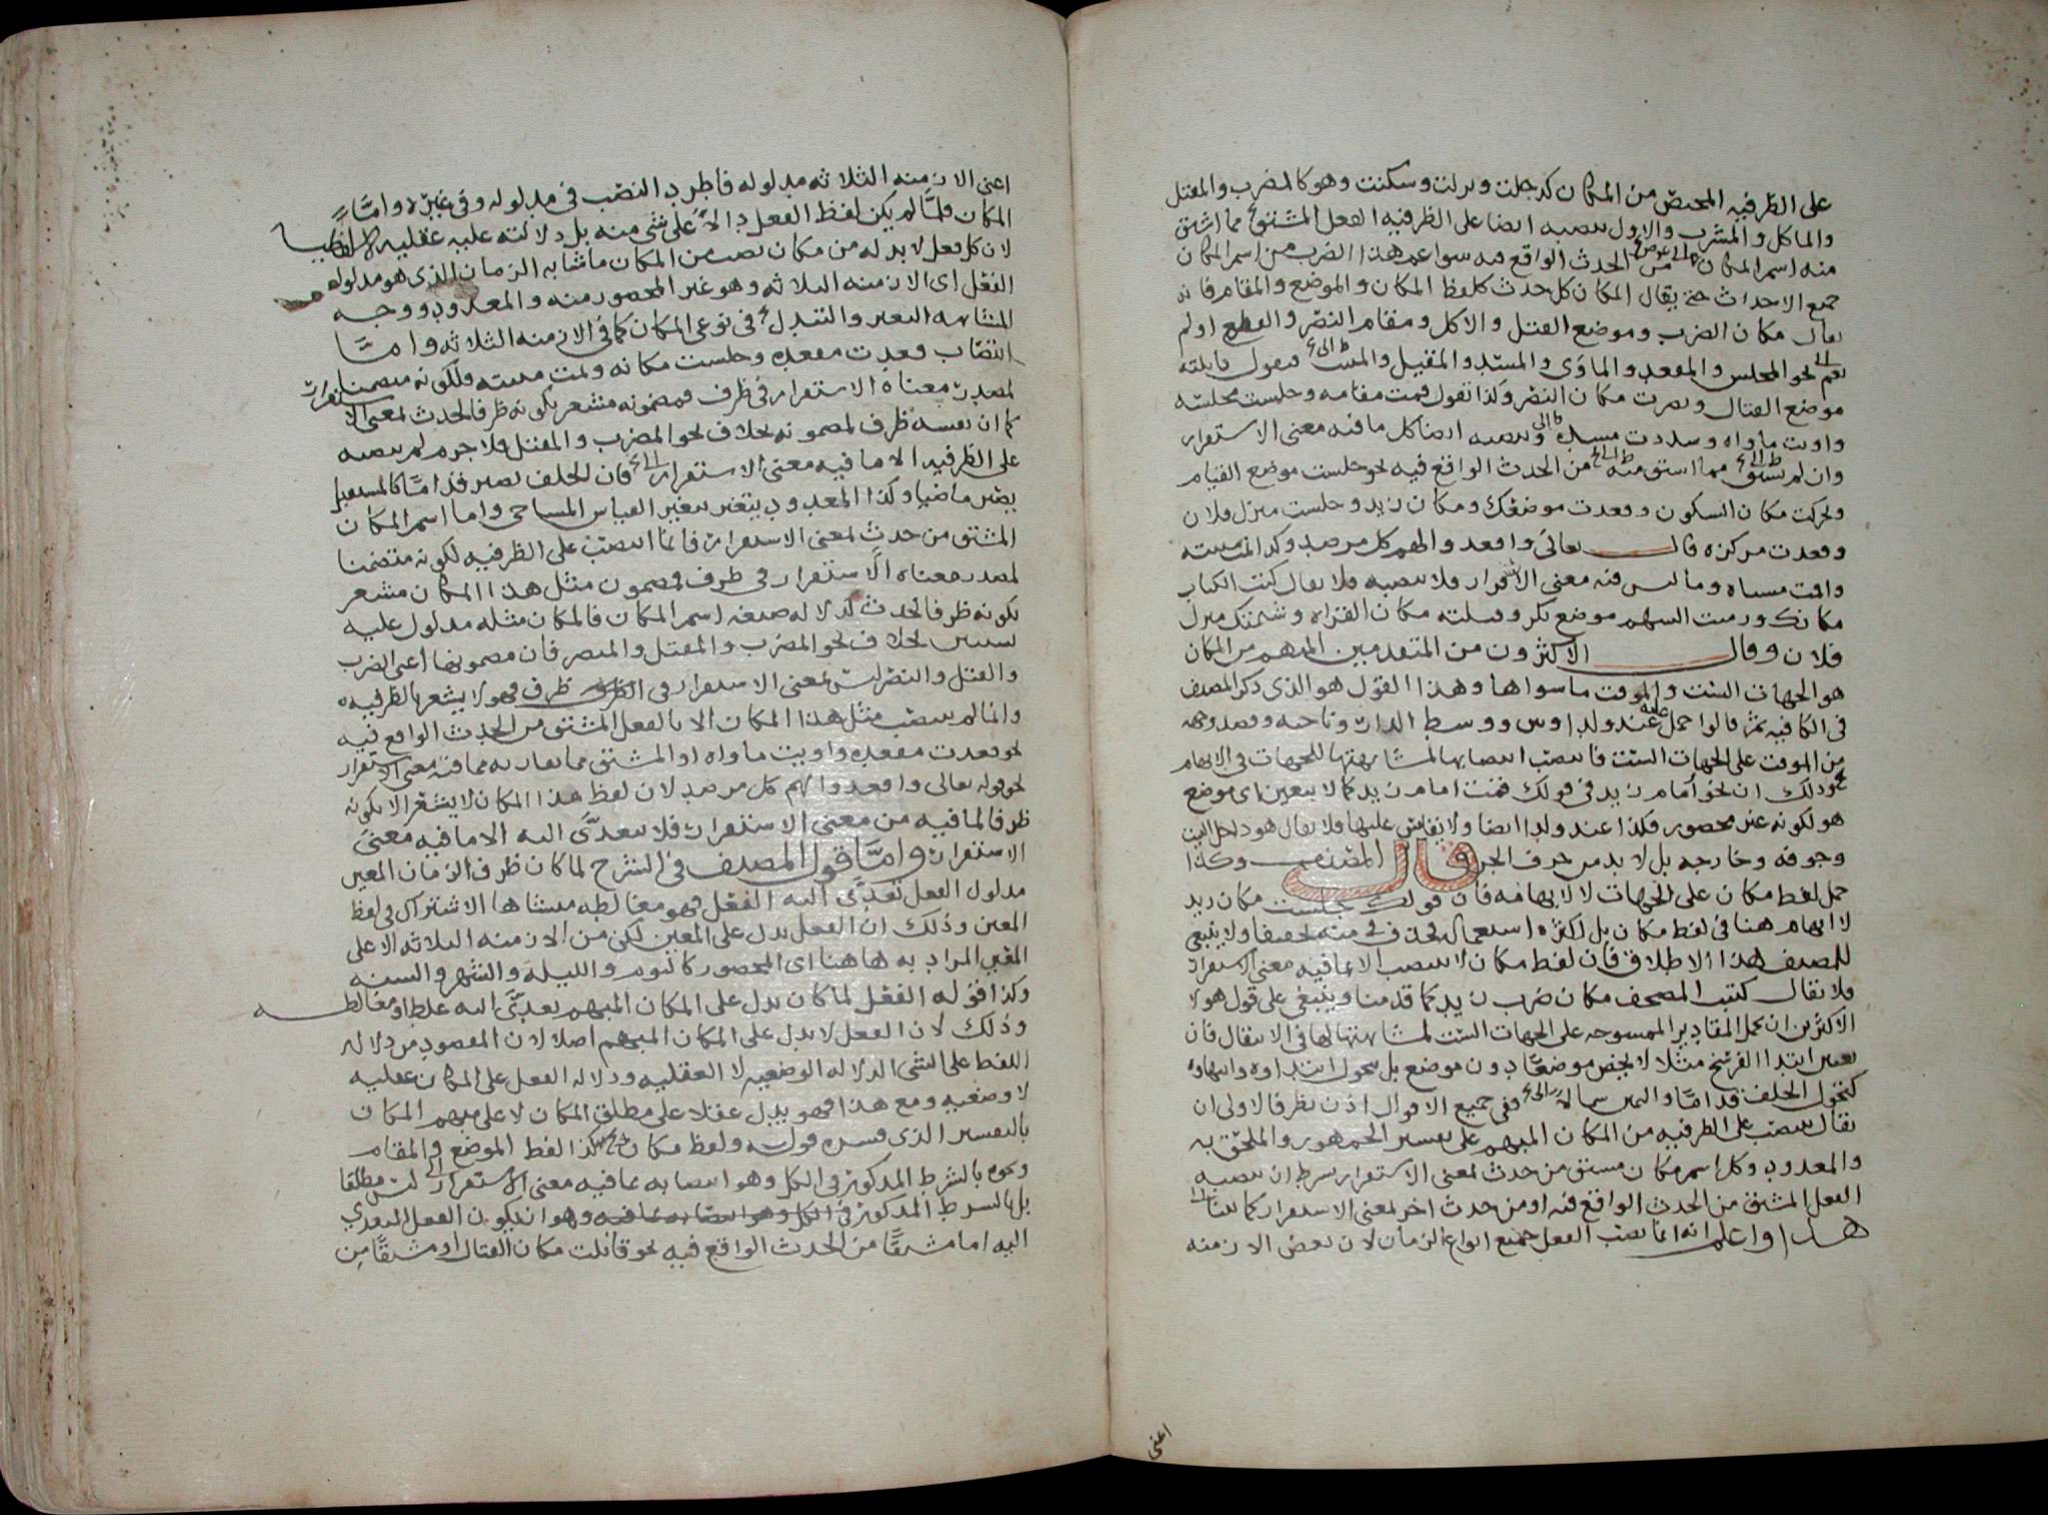 على الظرفيه المختص من المكان كدخلت ونزلت وسكنت وهو كالمضرب والمقتل
والماكل والمشرب والاول ينصبه ايضا على الظرفيه الفعل المشتق مما اشتق
منه اسم المكان الحدث الواقع فيه سوا عم هذا الضرب من اسم المكان
جميع الاحداث حتى يقال المكان كل حدث كلفظ المكان والموضع والمقام فانه
يقال مكان الضرب وموضع القتل والاكل ومقام النصر والقطع او لم
يعم نحو المجلس والمقعد والماوى والمسد والمقيل والمبيت فيقول قابلته
موضع القتال ونصرت مكان النصر ولذا تقول قمت مقامه وجلست مجلسه
واويت ماواه وسددت مسده وينصبه ايضا كل ما فيه معنى الاستقرار
وان لم يشتق مما اشتق منه من الحدث الواقع فيه نحو جلست موضع القيام
وتحركت مكان السكون وقعدت موضعك ومكان زيد وجلست منزل فلان
وقعدت مركزه قال تعالى واقعدوا لهم كل مرصد وكذا نمت مبيته
واقمت مسناه وما ليس فيه معنى الاستقرار فلا ينصبه فلا يقال كتبت الكتاب
مكانك ورميت السهم موضع بكر وقتلته مكان القراه وشتمتك منزل
فلان وقال الاكثرون من المتقدمين المبهم من المكان
هو الجهات الست والموقت ما سواها وهذا القول هو الذي ذكر المصنف
في الكافيه ثم قالوا حمل عليه عند ولدا وبين ووسط الدار وناحيه وقصد وجهه
من الموقت على الجهات الست فانتصب انتصابها لمشابهتها للجهات في الابهام
وذلك ان نحو امام زيد في قولك قمت امام زيد كما لا يتعين اي موضع
هو لكونه غير محصور فكذا عند ولدا ايضا ولا يقاس عليها فلا يقال هو داخل البيت
وجوفه وخارجه بل لا بد من حرف الجر قال المصنف وكذا
حمل لفظ مكان على الجهات لا لابهامه فان قولك جلست مكان زيد
لا ابهام هنا في لفظ مكان بل لكثره استعماله فحذف في منه تخفيفا ولا ينبغي
للمصنف هذا الاطلاق فان لفظ مكان لا ينتصب الا بما فيه معنى الاستقرار
فلا تقال كتبت المصحف مكان ضرب زيد كما قدمنا وينبغي على قول هولا
الاكثرين ان تحمل المقادير الممسوحه على الجهات الست لمشابهتها لها في الانتقال فان
تعيين ابتدا الفرسخ مثلا لا يختص موضعا دون موضع بل يتحول ابتداوه وانتهاوه
كتحول الخلف قداما واليمين شمالا وفي جميع الاقوال اذن نظر فالاولى ان
يقال ينتصب على الظرفيه من المكان المبهم على تفسير الجمهور والملحق به
والمعدود وكل اسم مكان مشتق من حدث لمعنى الاستقرار بشرط ان ينصبه
الفعل المشتق من الحدث الواقع فيه او من حدث اخر لمعنى الاستقرار كما بينا
هذا واعلم انه انما نصب الفعل جميع انواع الزمان لان بعض الازمنه
اعنى
اعنى الازمنه الثلاثه مدلوله فاطرد النصب في مدلوله وفي غيره واما
المكان فلما لم يكن لفظ الفعل دالا على شى منه بل دلالته عليه عقليه لا لفظيه
لان كل فعل لا بد له من مكان نصب من المكان ما شابه الزمان الذي هو مدلول
الفعل اي الازمنه الثلاثه وهو غير المحصور منه والمعدود ووجه
المشابهه التغير والتبدل في نوعي المكان كما في الازمنه الثلاثه واما
انتصاب قعدت مقعده وجلست مكانه ونمت مبيته فلكونه متضمنا
لمصدر معناه الاستقرار في ظرف فمضمونه مشعر بكونه ظرفا لحدث لمعنى الاستقرار
كما ان نفسه ظرف لمضمونه بخلاف نحو المضرب والمقتل فلا جرم لم ينصبه
على الظرفيه الا ما فيه معنى الاستقرار فان الخلف يصير قداما كالمستقبل
يصير ماضيا وكذا المعدود يتغير بتغير القياس المساحي واما اسم المكان
المشتق من حدث لمعنى الاستقرار فانما انتصب على الظرفيه لكونه متضمنا
لمصدر معناه الاستقرار في ظرف فمضمون مثل هذا المكان مشعر
بكونه ظرفا لحدث لدلاله صيغه اسم المكان فالمكان مثله مدلول عليه
بشيين بخلاف نحو المضرب والمقتل والمنصر فان مضمونها اعنى الضرب
والقتل والنصر ليس لمعنى الاستقرار في ظرف فهو لا يشعر بالظرفيه
وانما لم ينصب مثل هذا المكان الا بالفعل المشتق من الحدث الواقع فيه
نحو قعدت مقعده واويت ماواه او المشتق مما يقاربه مما فيه معنى الاستقرار
نحو قوله تعالى واقعدوا لهم كل مرصد لان لفظ هذا المكان لا يشعر الا بكونه
ظرفا لما فيه من معنى الاستقرار فلا يتعدى اليه الا ما فيه معنى
الاستقرار واما قول المصنف في الشرح لما كان ظرف الزمان المعين
مدلول الفعل تعدى اليه الفعل فهو مغالطه منشاها الاشتراك في لفظ
المعين وذلك ان الفعل يدل على المعين لكن من الازمنه الثلاثه لا على
المعين المراد به هاهنا اي المحصور كاليوم والليله والشهر والسنه
وكذا قوله الفعل لما كان يدل على المكان المبهم تعدى اليه غلط او مغالطه
وذلك لان الفعل لا يدل على المكان المبهم اصلا لان المقصود من دلاله
اللفظ على الشى الدلاله الوضعيه لا العقليه ودلاله الفعل على المكان عقليه
لا وضعيه ومع هذا فهو يدل عقلا على مطلق المكان لا على مبهم المكان
بالتفسير الذي فسره قوله ولفظ مكان كذا لفظ الموضع والمقام
ونحوه بالشرط المذكور في الكل وهو انتصابه بما فيه معنى الاستقرار ليس مطلقا
بل بالشرط المذكور في الكل وهو انتصابه بما فيه وهو ان يكون الفعل المتعدي
اليه اما مشتقا من الحدث الواقع فيه نحو قاتلت مكان القتال او مشتقا من